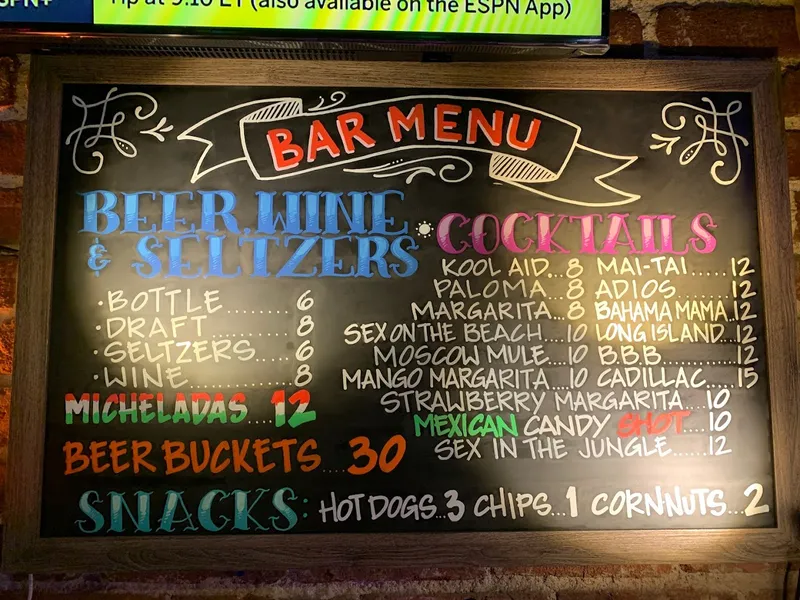 ESPN+
Tip at 9:10 ET (also available on the ESPN App)
BAR MENU
BEER, WINE
& SELTZERS
• BOTTLE........6
• DRAFT..........8
• SELTZERS.....6
• WINE............8
MICHELADAS....12
BEER BUCKETS....30
COCKTAILS
KOOL AID...8 MAI-TAI......12
PALOMA...8 ADIOS........12
MARGARITA...8 BAHAMA MAMA.12
SEX ON THE BEACH....10 LONG ISLAND...12
MOSCOW MULE...10 B.B.B............12
MANGO MARGARITA...10 CADILLAC.....15
STRAWBERRY MARGARITA...10
MEXICAN CANDY SHOT...10
SEX IN THE JUNGLE......12
SNACKS: HOT DOGS...3 CHIPS...1 CORNNUTS...2